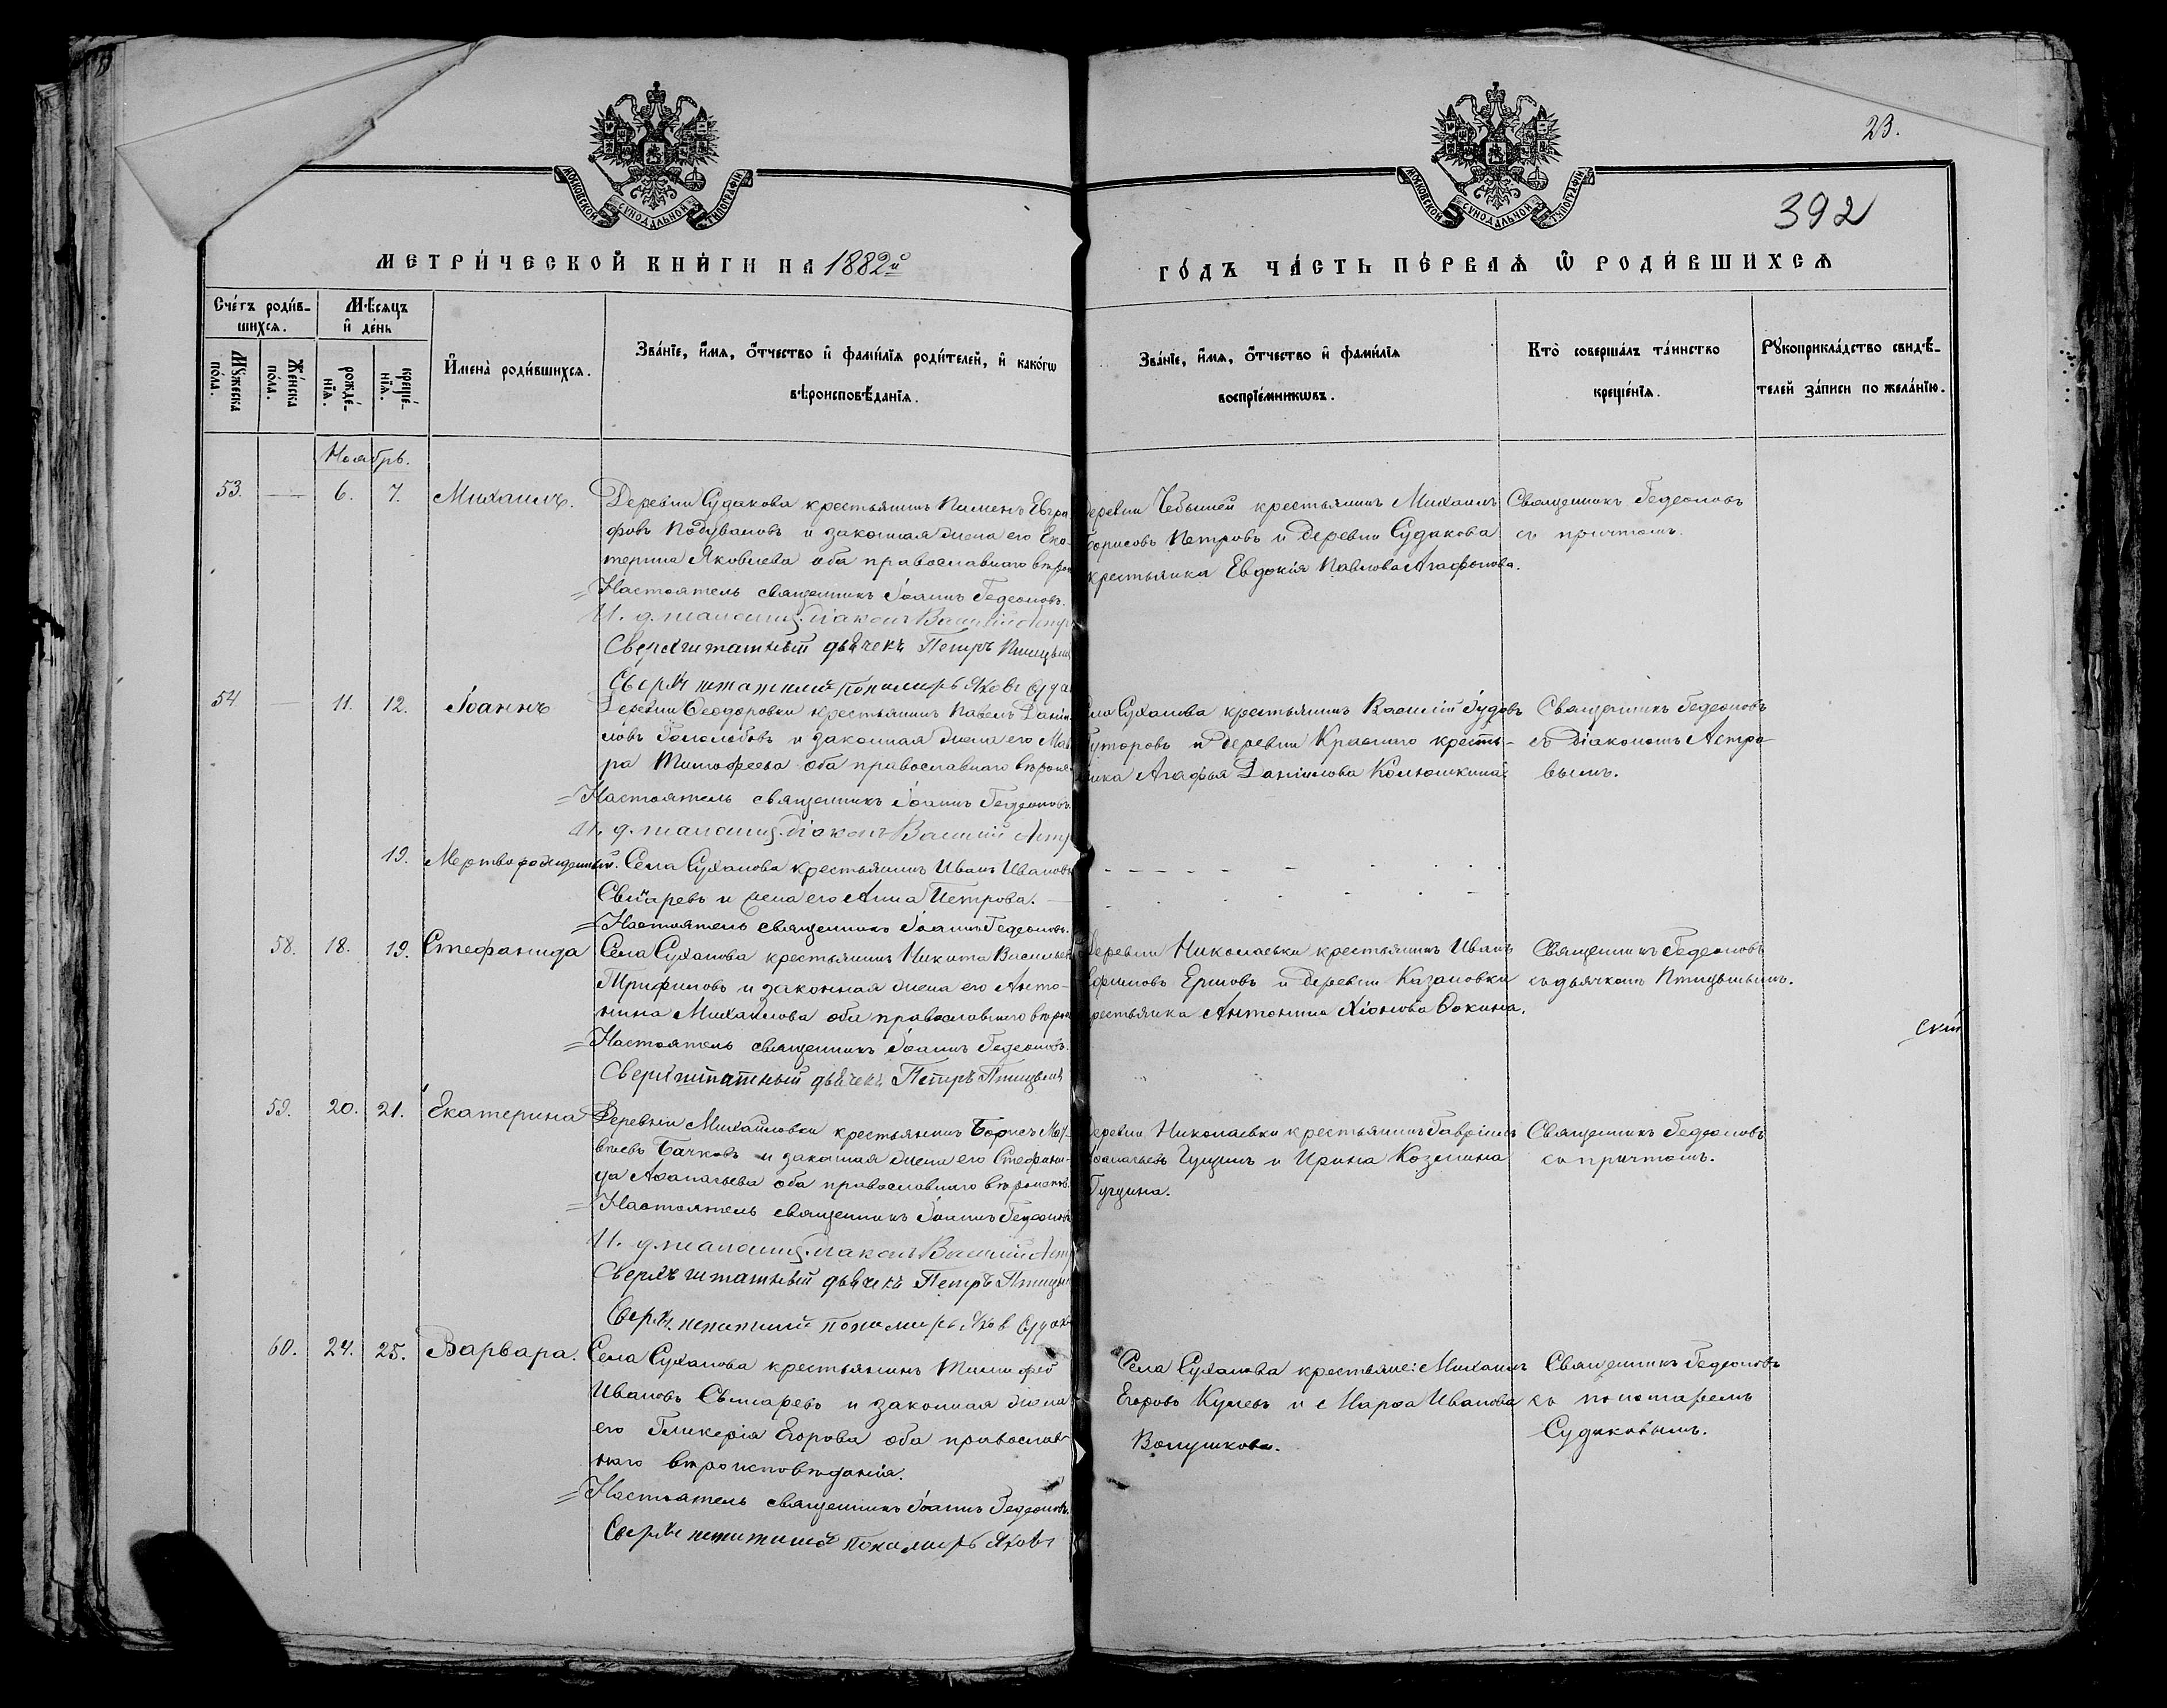 23.
392
МОСКОВСКОЙ СѴНОДАЛЬНОЙ ТѴПОГРАФІИ
МОСКОВСКОЙ СѴНОДАЛЬНОЙ ТѴПОГРАФІИ
МЕТРИ́ЧЕСКОЙ КНИ́ГИ НА 1882й
ГО́ДЪ ЧА́СТЬ ПЕ́РВАѦ Ѿ РОДИ́ВШИХСѦ
Сче́тъ роди́в-
шихсѧ.
Мѣ́сѧцъ
и҆ де́нь
Мꙋ́жеска
по́ла.
Же́нска
по́ла.
рожде́-
нїѧ.
креще́-
нїѧ.
И҆мена̀ роди́вшихсѧ.
Зва́нїе, и҆́мѧ, ѻ҆́тчество и҆ фами́лїѧ роди́телей, и҆ како́гѡ
вѣроисповѣ́данїѧ.
Зва́нїе, и҆́мѧ, ѻ҆́тчество и҆ фами́лїѧ
воспрїе́мникѡвъ.
Кто̀ соверша́лъ та́инство
креще́нїѧ.
Рꙋкоприкла́дство свидѣ́-
телей за́писи по жела́нїю.
Ноябрь.
53. — 6. 7. Михаилъ.
Деревни Судакова крестьянинъ Пименъ Евгра
фовъ Подуваловъ и законная жена его Ека-
терина Яковлева оба православнаго вѣрои
Настоятель священникъ Іоаннъ Гедеоновъ.
И. д. псаломщ. діаконъ Василій Астр
Сверхштатный дьячекъ Петръ Птицын
Сверхштатный пономарь Яковъ Суда
деревни Чебышей крестьянинъ Михаилъ
Борисовъ Петровъ и деревни Судакова
крестьянка Евдокія Павлова Агафонова.
Священникъ Гедеоновъ
съ причтомъ.
54 — 11. 12. Іоаннъ
Деревни Ѳеодоровки крестьянинъ Павелъ Даніи
ловъ Гололобовъ и законная жена его Мав
ра Тимофеева оба православнаго вѣроис
Настоятель священникъ Іоаннъ Гедеоновъ.
И. д. псаломщ. діаконъ Василій Астр
Села Суханова крестьянинъ Василій Іудовъ
Буторовъ и деревни Краснаго кресть-
янка Агафья Даніилова Колюшкина.
Священникъ Гедеоновъ
съ діакономъ Астро-
вымъ.
19. Мертворожденный. Села Суханова крестьянинъ Иванъ Ивановъ
Свинаревъ и жена его Анна Петрова.
Настоятель священникъ Іоаннъ Гедеоновъ.
58. 18. 19. Стефанида
Села Суханова крестьянинъ Никита Васильев
Трифиловъ и законная жена его Анто-
нина Михайлова оба православнаго вѣрои
Настоятель священникъ Іоаннъ Гедеоновъ.
Сверхштатный дьячекъ Петръ Птицынъ
Деревни Николаевки крестьянинъ Иванъ
Ефимовъ Ершовъ и деревни Казановки
крестьянка Антонина Хіонова Ѳокина.
Священникъ Гедеоновъ
съ дьячкомъ Птицынымъ.
59. 20. 21. Екатерина
Деревни Михайловки крестьянинъ Борисъ Мат-
вѣевъ Бачковъ и законная жена его Стефани-
да Аѳанасьева оба православнаго вѣроиспов.
Настоятель священникъ Іоаннъ Гедеоновъ
И. д. псаломщ. діаконъ Василій Астр
Сверхъштатный дьячекъ Петръ Птицын
Сверхъштатный пономарь Яковъ Судак
деревни Николаевки крестьянинъ Гавріилъ
Аѳанасьевъ Гущинъ и Ирина Козмина
Гущина.
Священникъ Гедеоновъ
съ причтомъ.
60. 24. 25. Варвара.
Села Суханова крестьянинъ Тимофей
Ивановъ Свинаревъ и законная жена
его Гликерія Егорова оба православ-
наго вѣроисповѣданія.
Настоятель священникъ Іоаннъ Гедеоновъ.
Сверхштатный пономарь Яковъ
Села Суханова крестьяне: Михаилъ
Егоровъ Кулевъ и Марѳа Иванова
Волушкова.
Священникъ Гедеоновъ
съ пономаремъ
Судаковымъ.